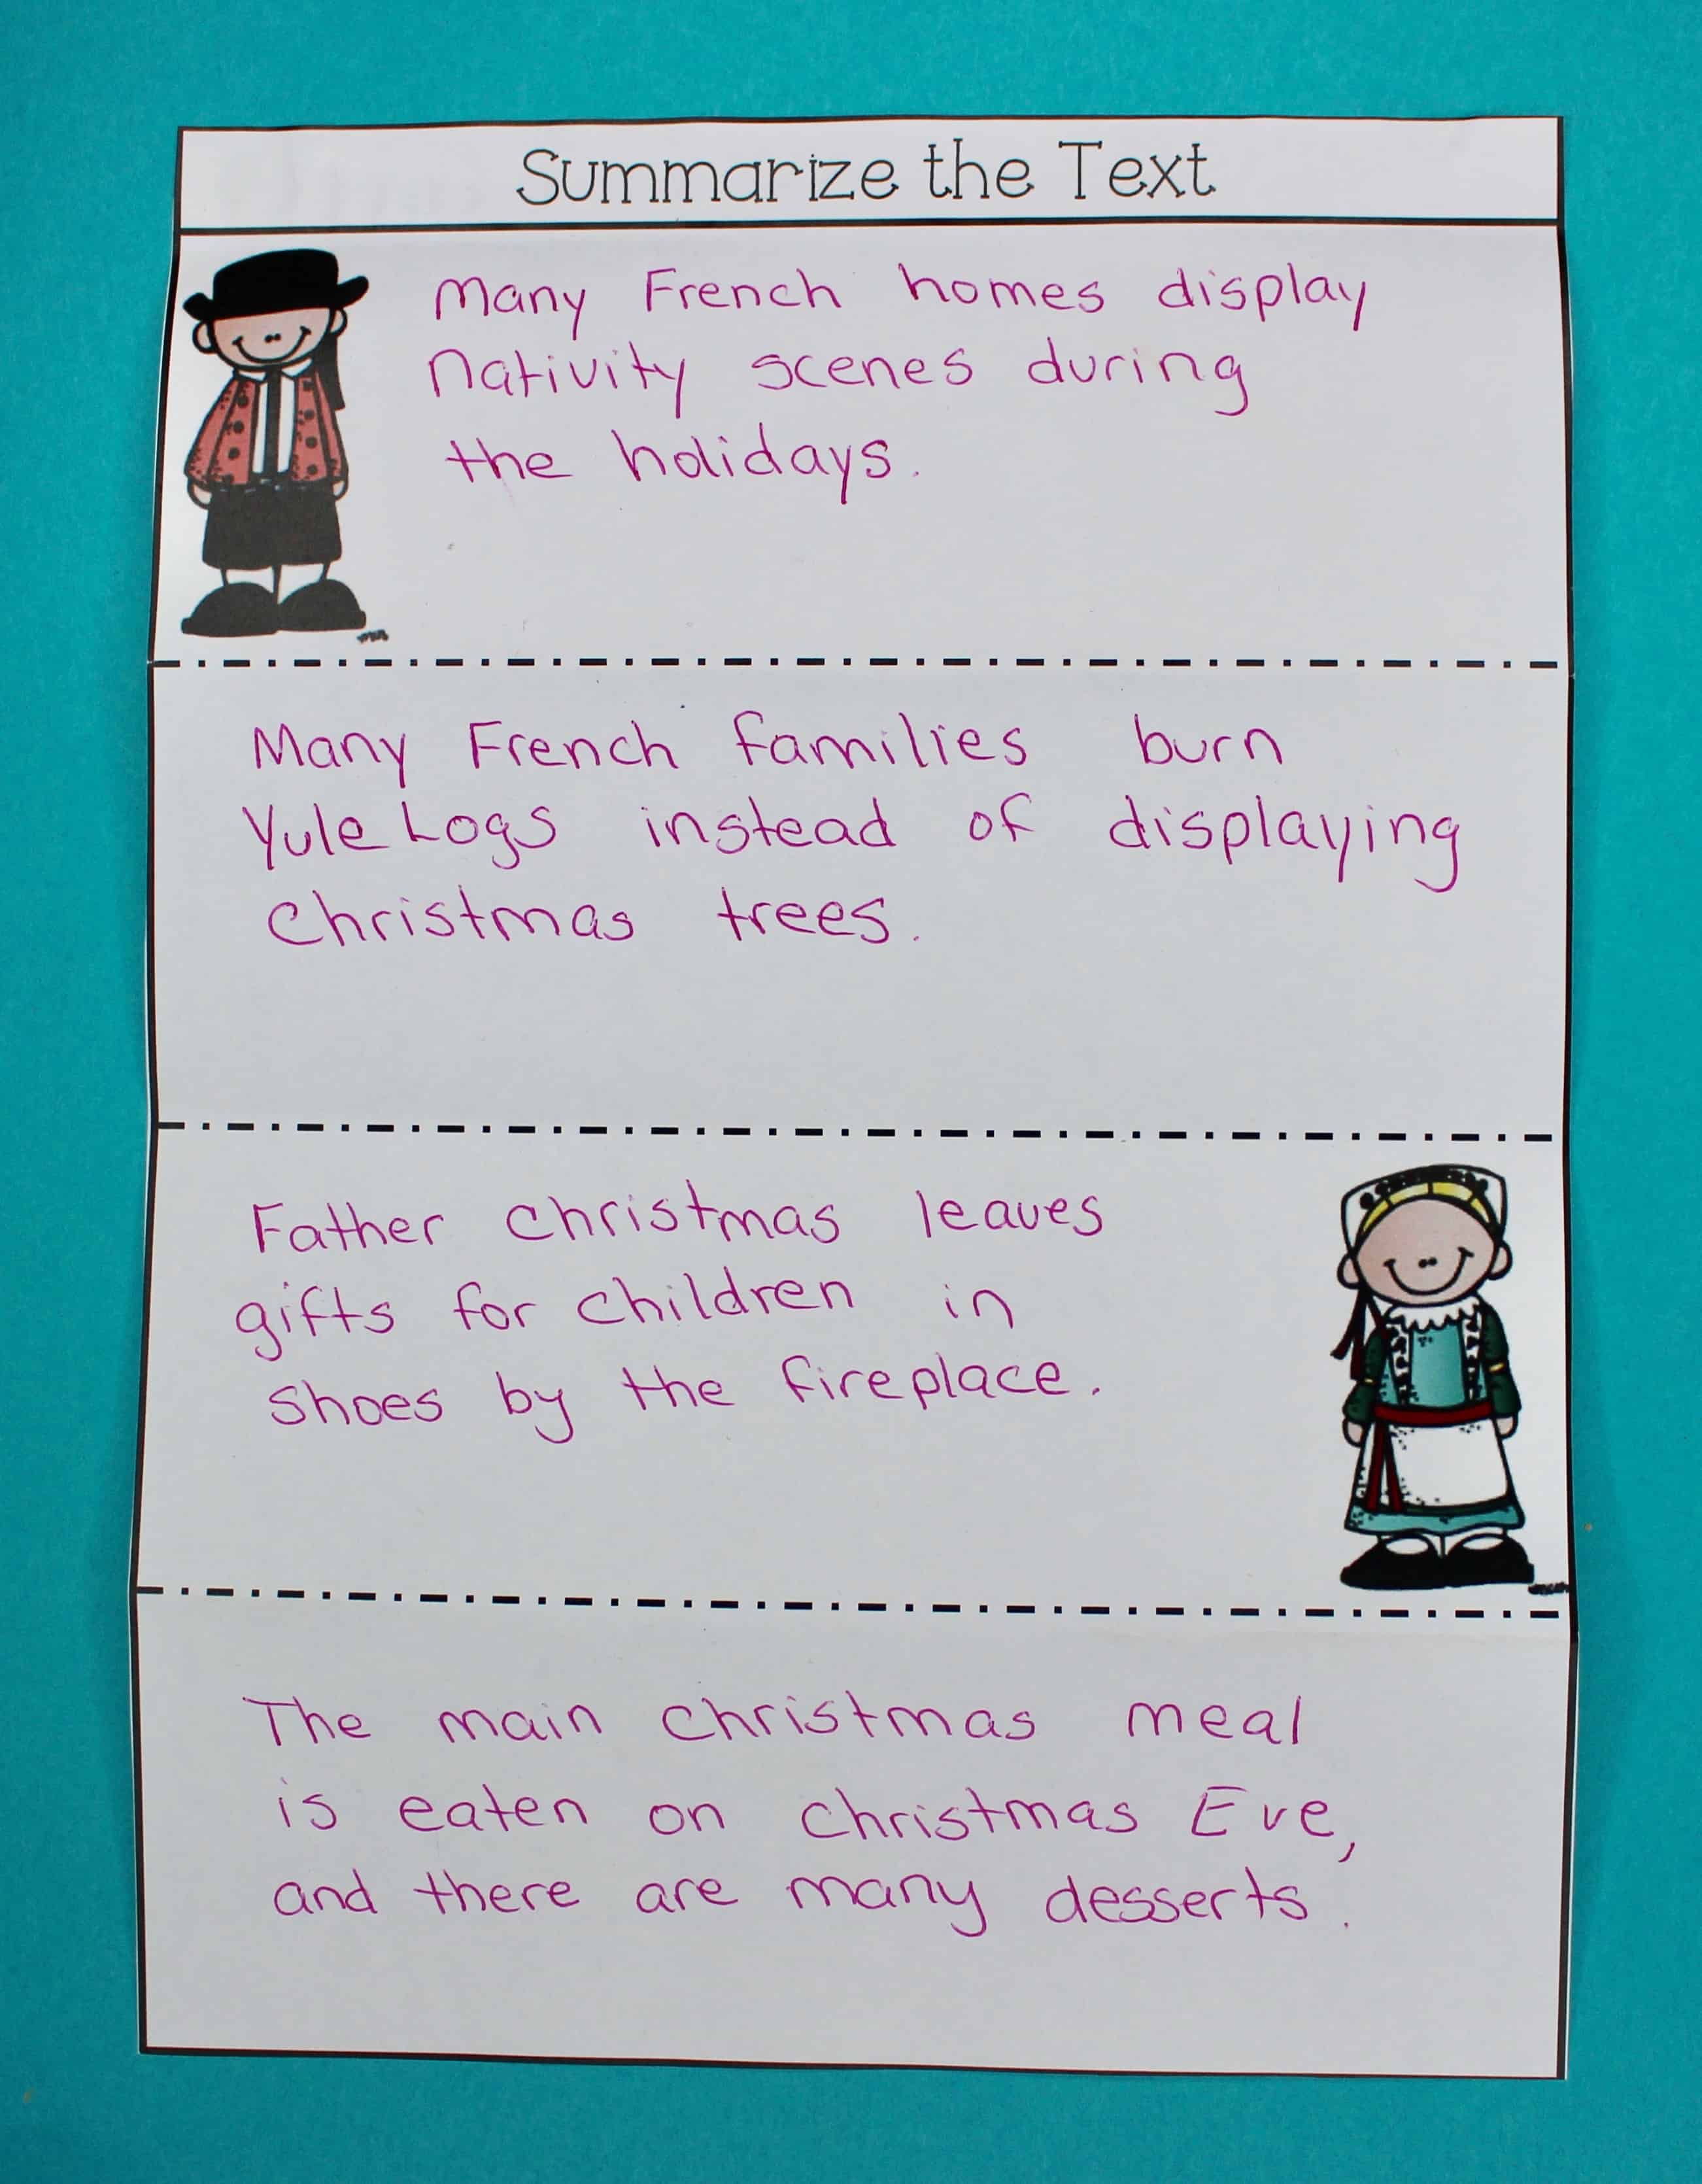 Summarize the Text
Many French homes display
nativity scenes during
the holidays.
Many French families burn
Yule Logs instead of displaying
Christmas trees.
Father Christmas leaves
gifts for children in
shoes by the fireplace.
The main Christmas meal
is eaten on Christmas Eve,
and there are many desserts.